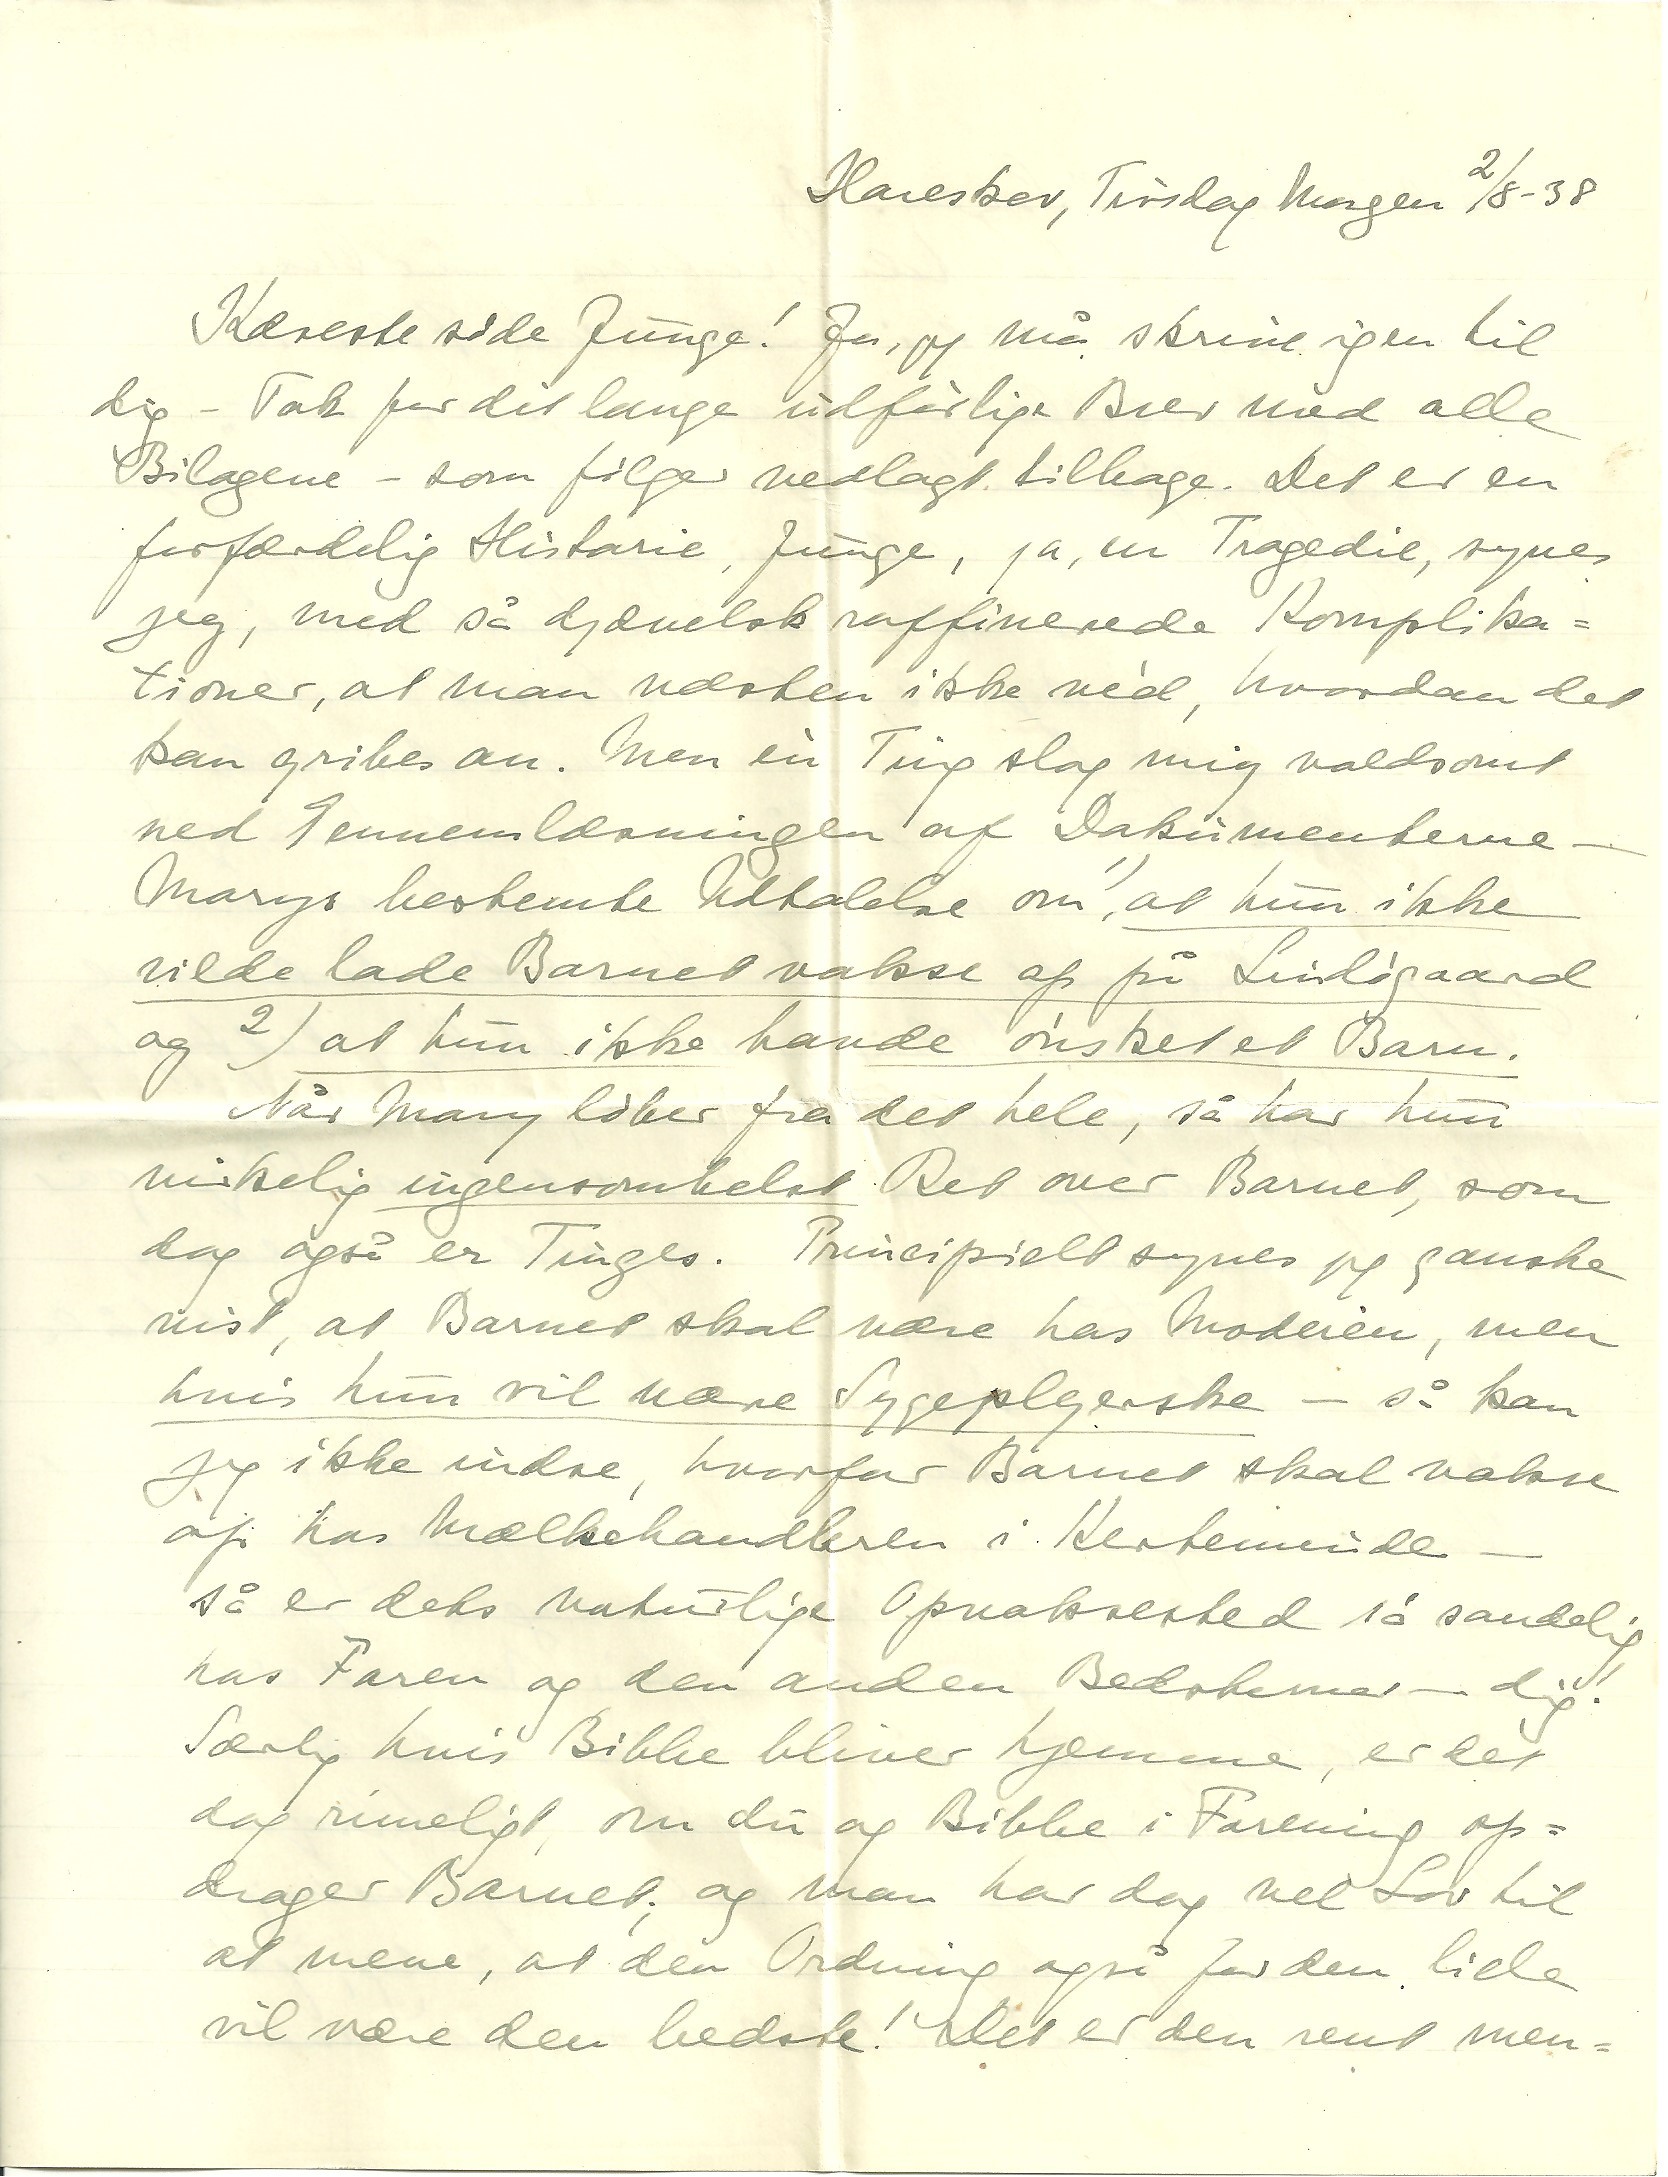 Hareskov, Tirsdag Morgen 2/8-38
Kæreste søde Junge! Ja, jeg må skrive igen til
dig - Tak for dit lange udførlige Brev med alle
Bilagene - som følger vedlagt tilbage. Det er en
forfærdelig Historie, Junge, ja, en Tragedie, synes
jeg, med så djævelsk raffinerede Komplika=
tioner, at man næsten ikke véd, hvordan det
kan gribes an. Men én Ting slog mig voldsomt
ved Gennemlæsningen af Dokumenterne —
Marys bestemte Udtalelse om 1) at hun ikke
vilde lade Barnet vokse op på Lindøgaard
og 2) at hun ikke havde ønsket et Barn.
Når Mary løber fra det hele, så har hun
virkelig ingensomhelst Ret over Barnet, som
dog også er Tinges. Principielt synes jeg ganske
vist, at Barnet skal være hos Moderen, men
hvis hun vil være Sygeplejerske — så kan
jeg ikke indse, hvorfor Barnet skal vokse
op hos Mælkehandleren i Kerteminde —
så er dets naturlige Opvoksested så sandelig
hos Faren og den anden Bedstemor — dig!
Særlig hvis Bibbe bliver hjemme, er det
dog rimeligt, om du og Bibbe i Forening op=
drager Barnet; og man har dog vel Lov til
at mene, at den Ordning også for den lille
vil være den bedste! Det er den rent men=